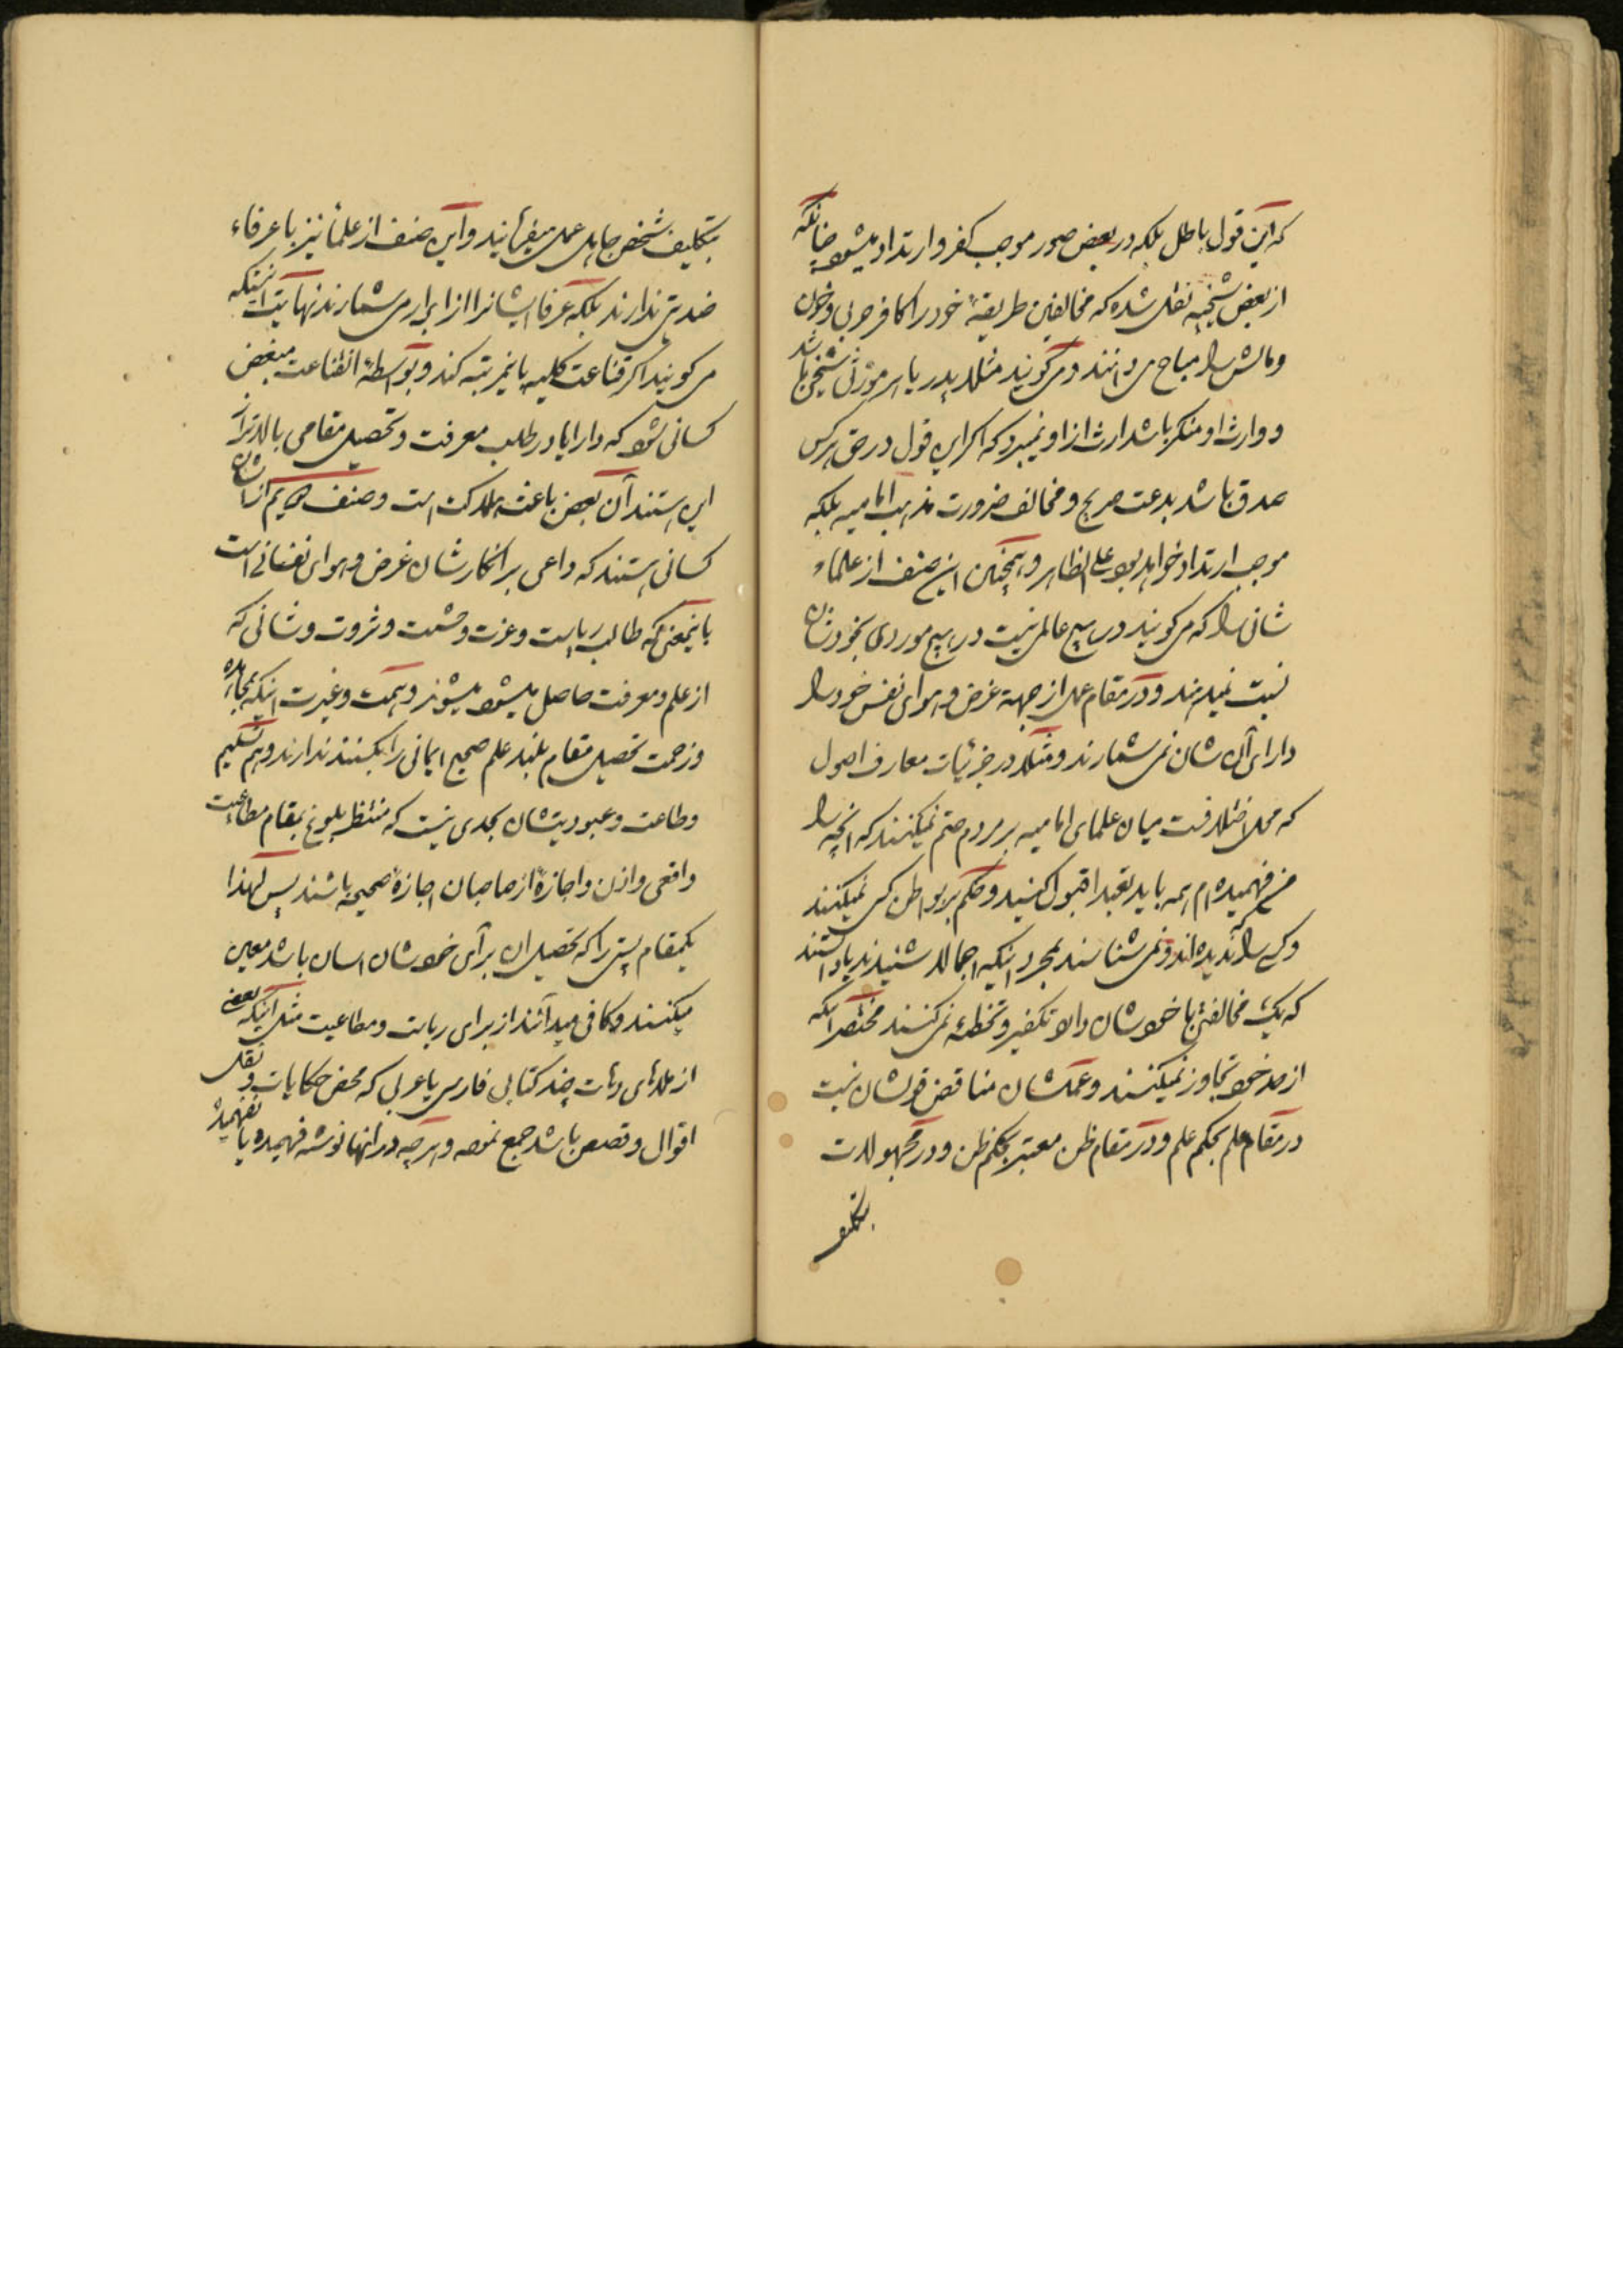 که این قول باطل بلکه در بعض صور موجب کفر و ارتداد میشود چنانکه
از بعض شیخیه نقل شده که مخالفین طریقهٔ خود را کافر حربی و خون
و مالش را مباح می دانند و می گویند مثلا پدر یا هر مورثی شیخی باشد
و وارث او منکر باشد ارث از او نمیبرد که اگر این قول در حق هر کس
صدق باشد بدعت صریح و مخالف ضرورت مذهب امامیه بلکه
موجب ارتداد خواهد بود علی الظاهر و همچنین این صنف از علماء
شانی را که می گویند در هیچ عالمی نیست در هیچ موردی بخودشان
نسبت نمیدهند و در مقام عمل از جهة غرض و هوای نفس خود را
دارای آن شان نمی شمارند و مثلا در جزئیات معارف اصول
که محل اختلافست میان علمای امامیه بر مردم حتم نمیکنند که آنچه را
من فهمیده ام همه باید تعبدا قبول کنید و حکم بر بواطن کسی نمیکنند
و کسی را ندیده اند و نمی شناسند بمجرد اینکه اجمالا شنیدند یا دانستند
که یک مخالفتی با خودشان دارد تکفیر و تخطئه نمی کنند مختصرا اینکه
از حد خود تجاوز نمیکنند و عملشان مناقض قولشان نیست
در مقام علم بحکم علم و در مقام ظن معتبر بحکم ظن و در مجهولات
بتکلیف
بتکلیف شخص جاهل عمل میفرمایند و این صنف از علما نیز با عرفاء
ضدیتی ندارند بلکه عرفا ایشانرا از ابرار می شمارند نهایت اینستکه
می گویند اگر قناعت کلیه باین مرتبه کند و بواسطهٔ این قناعت مبغض
کسانی شود که دارا یا در طلب معرفت و تحصیل مقامی بالاتر از
این هستند آن بعض باعث هلاکت است و صنف دویم از ایشان
کسانی هستند که داعی بر انکارشان غرض و هوای نفسانی است
باینمعنی که طالب ریاست و عزت و حشمت و ثروت و شانی که
از علم و معرفت حاصل میشود میشوند و همت و غیرت اینکه مجاهده
و زحمت تحصیل مقام بلند علم صحیح ایمانی را بکشند ندارند و هم تسلیم
و طاعت و عبودیتشان بحدی نیست که منتظر بلوغ بمقام مطاعیت
واقعی و اذن و اجازهٔ از صاحبان اجازهٔ صحیحه باشند پس لهذا
یکمقام پستی را که تحصیل ان برای خودشان اسان باشد معین
میکنند و کافی میدانند از برای ریاست و مطاعیت مثل اینکه بعضی
از ملاهای دهات چند کتابی فارسی یا عربی که محض حکایات و نقل
اقوال و قصص باشد جمع نموده و هر چه در انها نوشته فهمیده یا نفهمیده